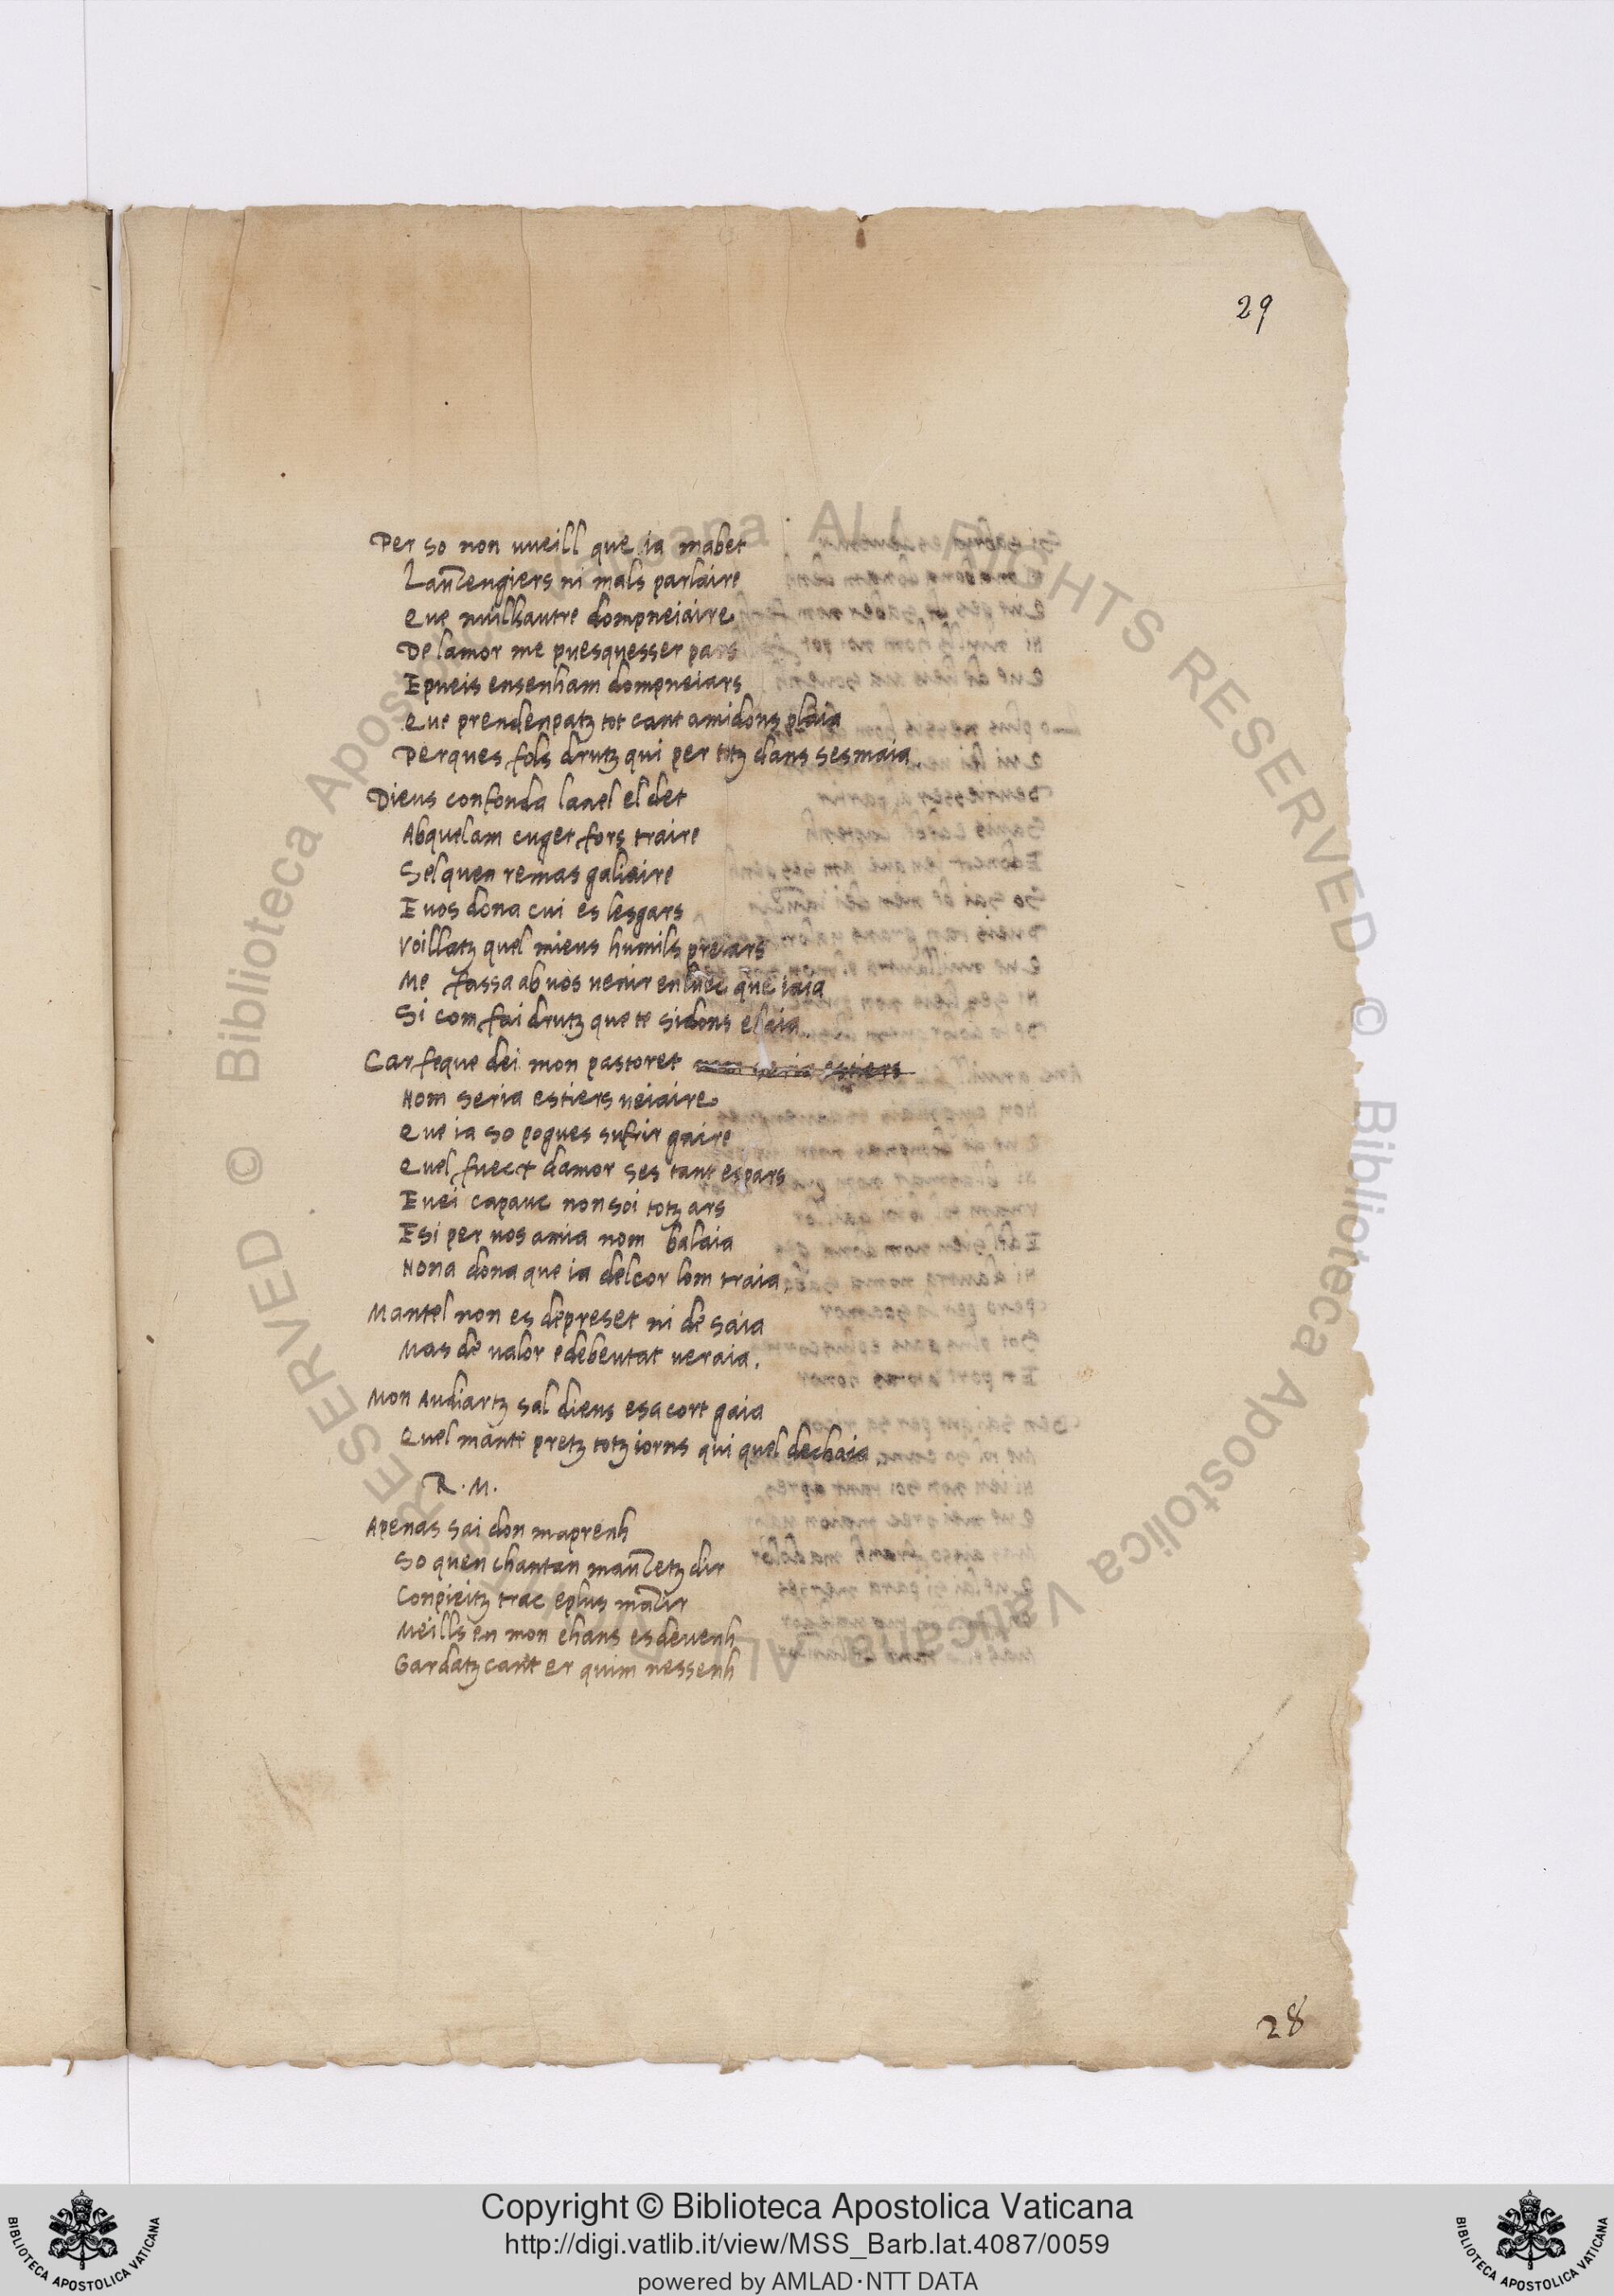 29
Per so non uueill que ia mabet
Lauzengiers ni mals parlaire
Que nuillsautre dompneiaire
De lamor me puesquesser pars
E pueis ensenham dompneiars
Que prendenpatz tot cant amidons plaia
Perques fols drutz qui per totz dans sesmaia.
Dieus confonda lanel el det
Abquelam cuget fors traire
Selquen remas galiaire
E uos dona cui es lesgars
Voillatz quel mieus humils preiars
Me fassa ab uos uenir enluec que iaia
Si com fai drutz que te sidons elaia
Car feque dei mon pastoret seria estiers
Nom seria estiers ueiaire
Que ia so pogues sufrir gaire
Quel fuect damor ses tant espars
E uei capauc nonsoi totz ars
Esi per uos amia nom balaia
Nona dona que ia delcor lom traia.
Mantel non es depreset ni de saia
Mas de ualor edebeutat ueraia.
Mon Audiartz sal dieus esacort gaia
Quel mante pretz totz iorns qui quel dechaia.
R. M.
Apenas sai don maprenh
So quen chantan mauzetz dir
Conpieitz trac eplus mazir
Meills en mon chans esdeuenh
Gardatz cant er quim nessenh
28
Copyright © Biblioteca Apostolica Vaticana
http://digi.vatlib.it/view/MSS_Barb.lat.4087/0059
powered by AMLAD·NTT DATA
BIBLIOTECA APOSTOLICA VATICANA
BIBLIOTECA APOSTOLICA VATICANA
© Biblioteca Apostolica Vaticana ALL RIGHTS RESERVED
© Biblioteca Apostolica Vaticana ALL RIGHTS RESERVED